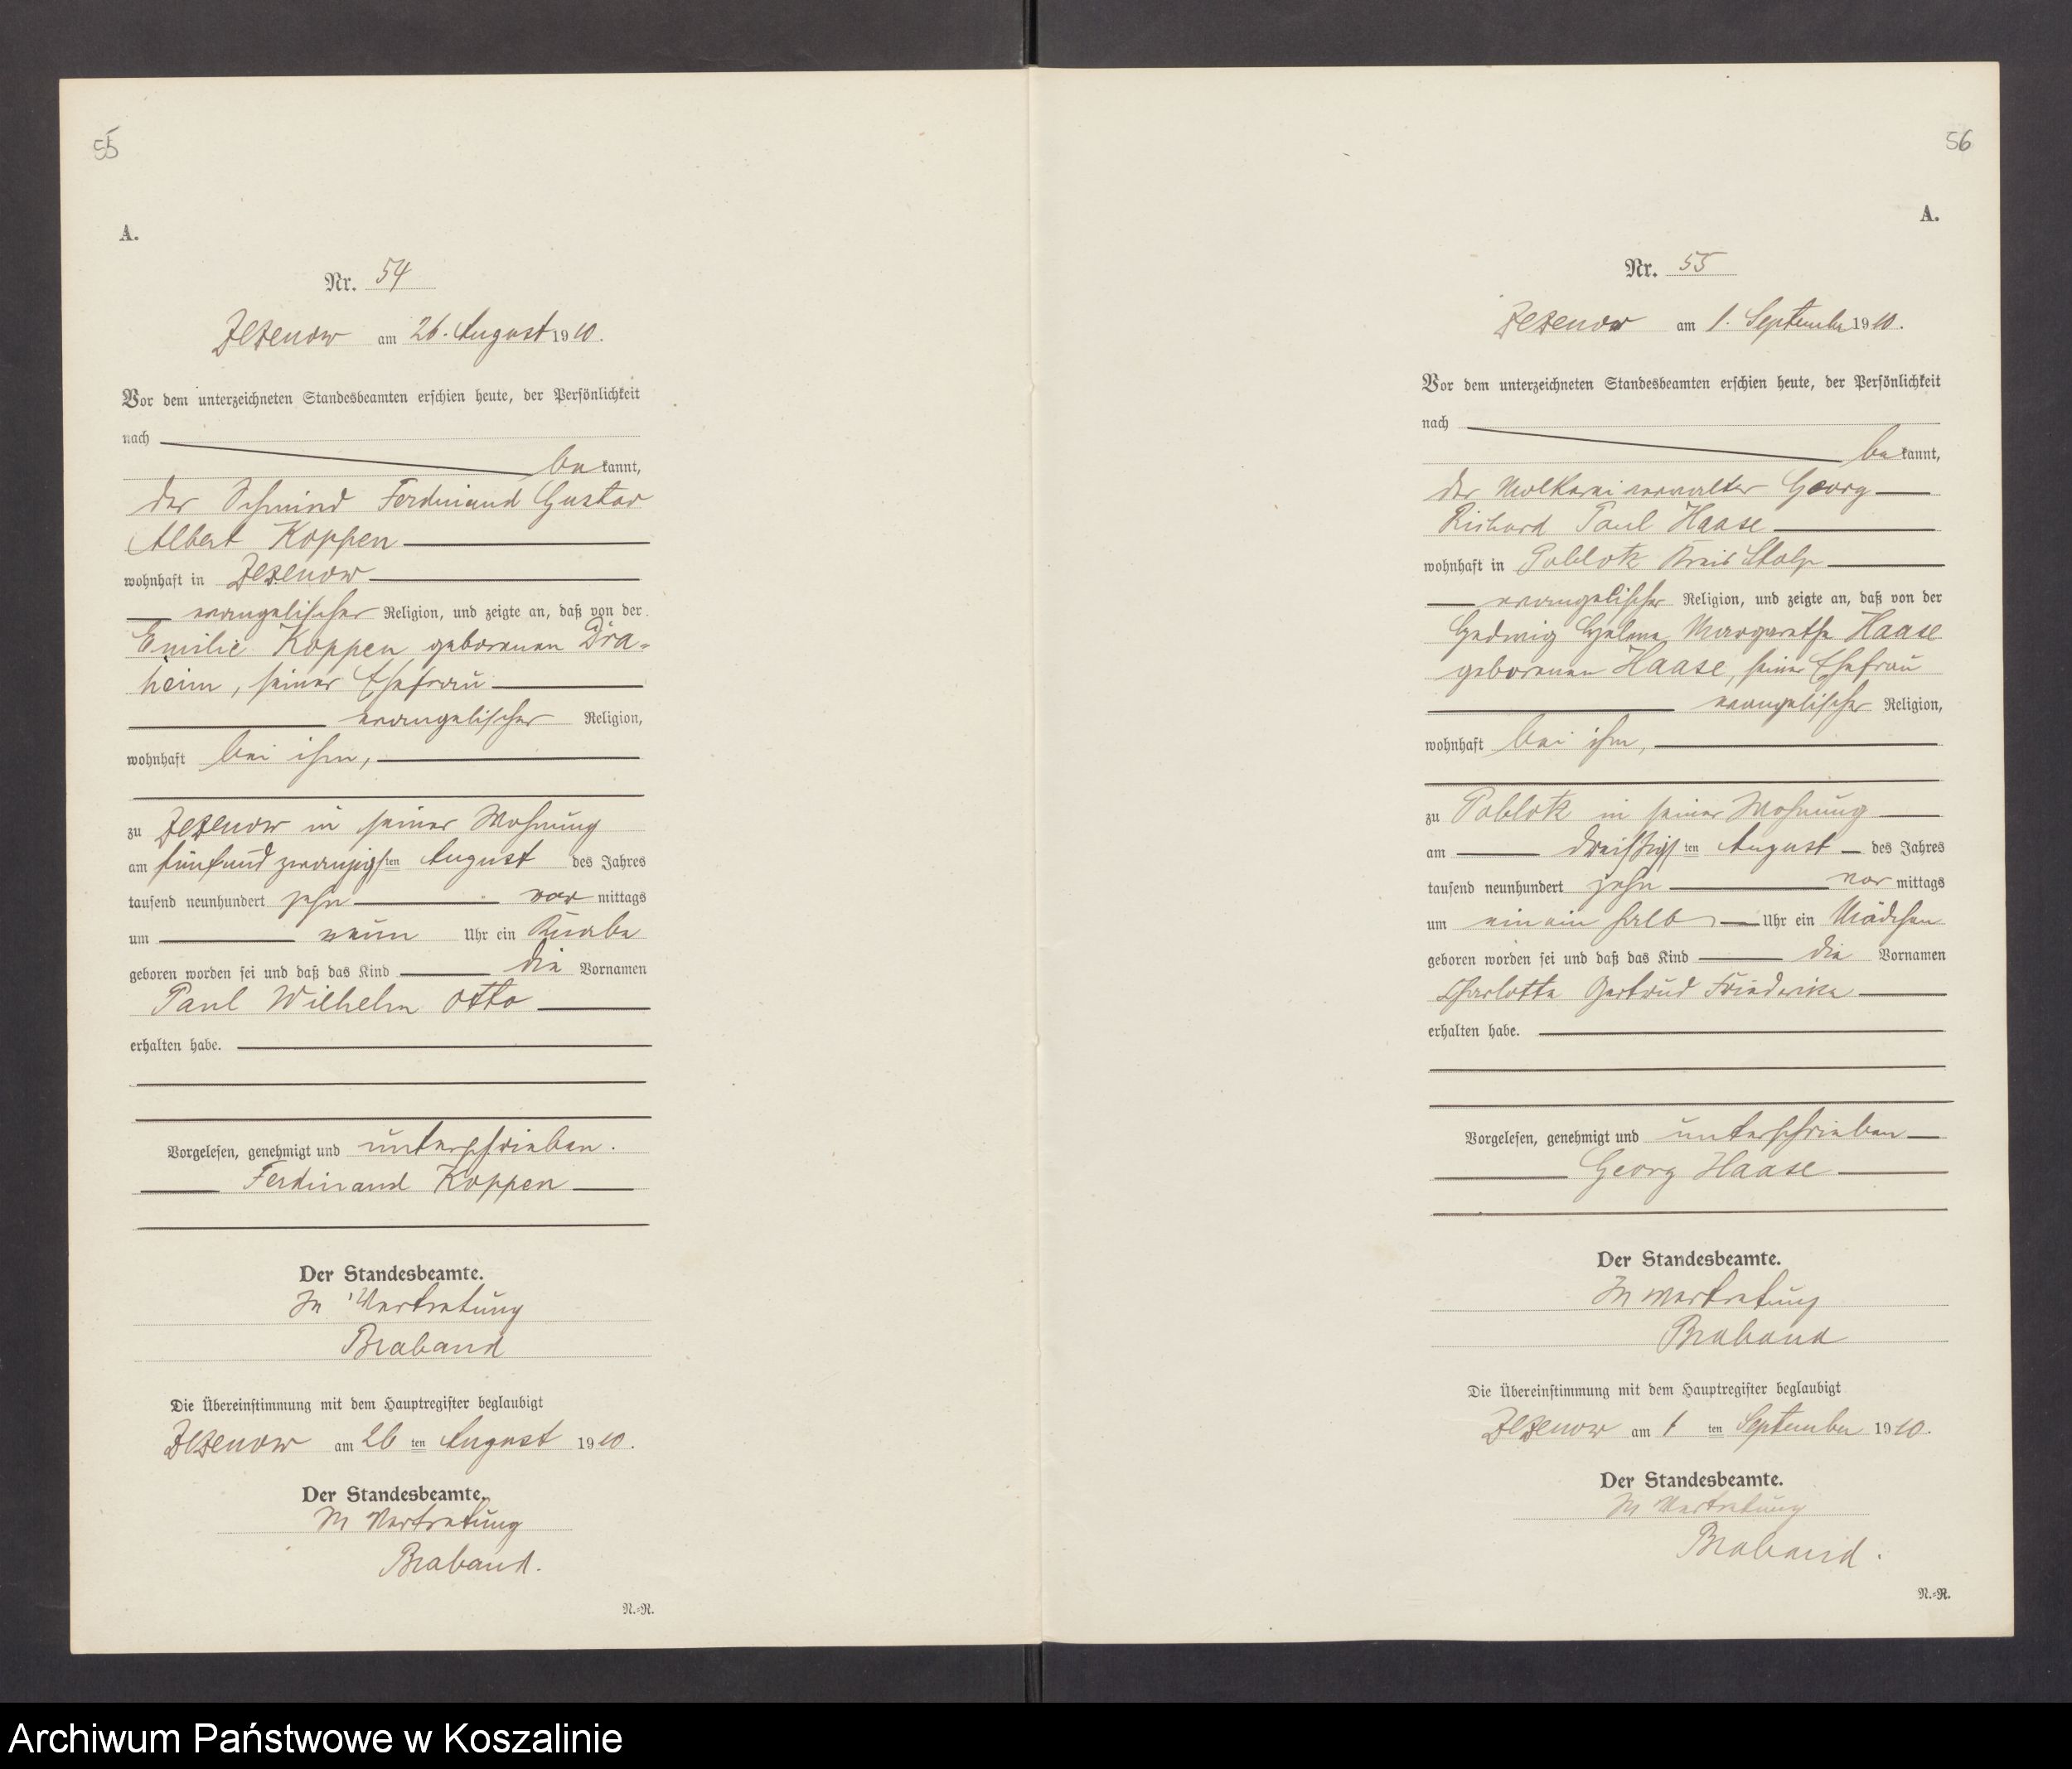 55
A.
Nr. 54
Zezenow am 26. August 1910.
Vor dem unterzeichneten Standesbeamten erschien heute, der Persönlichkeit
nach
be kannt,
der Schmied Ferdinand Gustav
Albert Koppen
wohnhaft in Zezenow
evangelischer Religion, und zeigte an, daß von der
Emilie Koppen geborenen Dra-
heim, seiner Ehefrau
evangelischer Religion,
wohnhaft bei ihm,
zu Zezenow in seiner Wohnung
am fünfundzwanzigsten August des Jahres
tausend neunhundert zehn vor mittags
um neun Uhr ein Knabe
geboren worden sei und daß das Kind die Vornamen
Paul Wilhelm Otto
erhalten habe.
Vorgelesen, genehmigt und unterschrieben.
Ferdinand Koppen
Der Standesbeamte.
In Vertretung
Braband
Die Übereinstimmung mit dem Hauptregister beglaubigt
Zezenow am 26 ten August 1910.
Der Standesbeamte.
In Vertretung
Braband.
N.-R.
56
A.
Nr. 55
Zezenow am 1. September 1910.
Vor dem unterzeichneten Standesbeamten erschien heute, der Persönlichkeit
nach
be kannt,
der Molkereiverwalter Georg
Richard Paul Haase
wohnhaft in Poblotz Kreis Stolp
evangelischer Religion, und zeigte an, daß von der
Hedwig Helene Margarethe Haase
geborenen Haase, seiner Ehefrau
evangelischer Religion,
wohnhaft bei ihm,
zu Poblotz in seiner Wohnung
am dreißigsten August des Jahres
tausend neunhundert zehn vor mittags
um ein ein halb Uhr ein Mädchen
geboren worden sei und daß das Kind die Vornamen
Charlotte Gertrud Friederike
erhalten habe.
Vorgelesen, genehmigt und unterschrieben
Georg Haase
Der Standesbeamte.
In Vertretung
Braband
Die Übereinstimmung mit dem Hauptregister beglaubigt
Zezenow am 1 ten September 1910.
Der Standesbeamte.
In Vertretung
Braband.
N.-R.
Archiwum Państwowe w Koszalinie